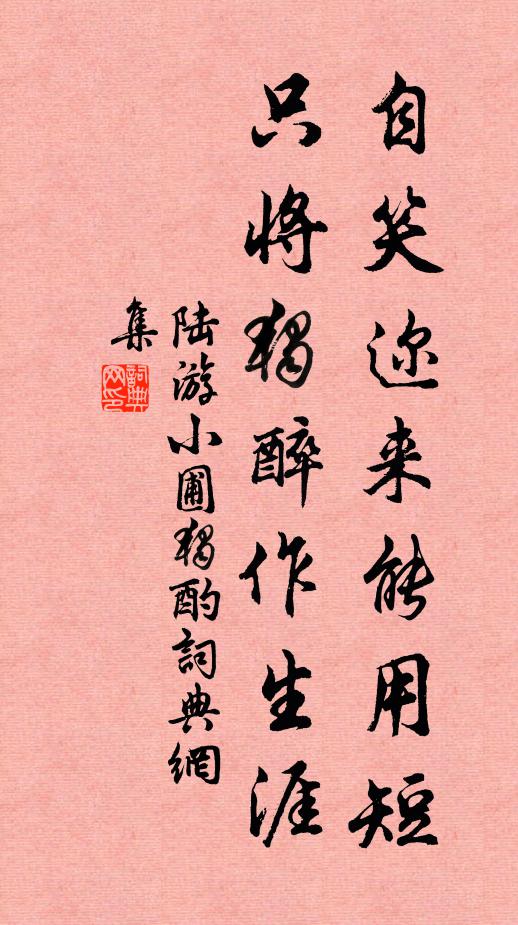 自笑迩来能用短
只将独醉作生涯
陆游小圃独酌詞典網
集
詞典网印